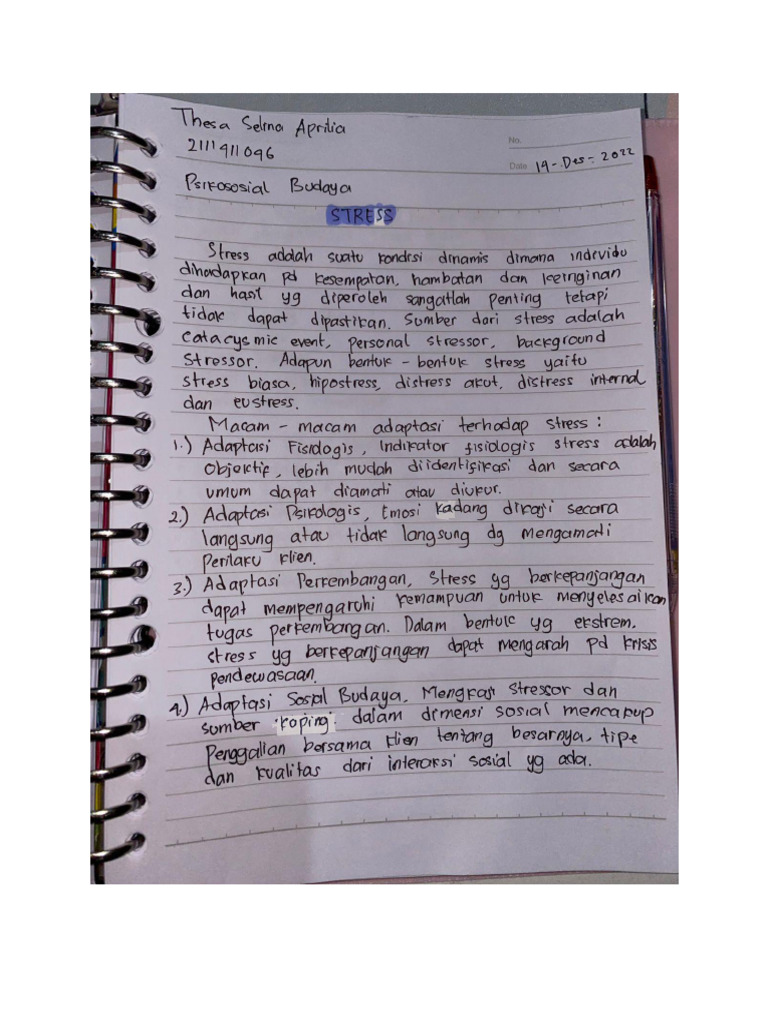 Thesa Selma Aprilia
2111411046
No.
Date 19-Des-2022
Psikososial Budaya
STRESS
Stress adalah suatu kondisi dinamis dimana individu
dihadapkan pd kesempatan, hambatan dan keinginan
dan hasil yg diperoleh sangatlah penting tetapi
tidak dapat dipastikan. Sumber dari stress adalah
catacysmic event, personal stressor, background
stressor. Adapun bentuk - bentuk stress yaitu
stress biasa, hipostress, distress akut, distress internal
dan eustress.
Macam - macam adaptasi terhadap stress :
1.) Adaptasi Fisiologis, Indikator fisiologis stress adalah
Objektif, lebih mudah diidentifikasi dan secara
umum dapat diamati atau diukur.
2.) Adaptasi Psikologis, Emosi kadang dikaji secara
langsung atau tidak langsung dg mengamati
Perilaku klien.
3.) Adaptasi Perkembangan, Stress yg berkepanjangan
dapat mempengaruhi kemampuan untuk menyelesaikan
tugas perkembangan. Dalam bentuk yg ekstrem,
stress yg berkepanjangan dapat mengarah pd krisis
pendewasaan.
4.) Adaptasi Sosial Budaya, Mengkaji stressor dan
sumber koping dalam dimensi sosial mencakup
Penggalian bersama klien tentang besarnya, tipe
dan kualitas dari interaksi sosial yg ada.